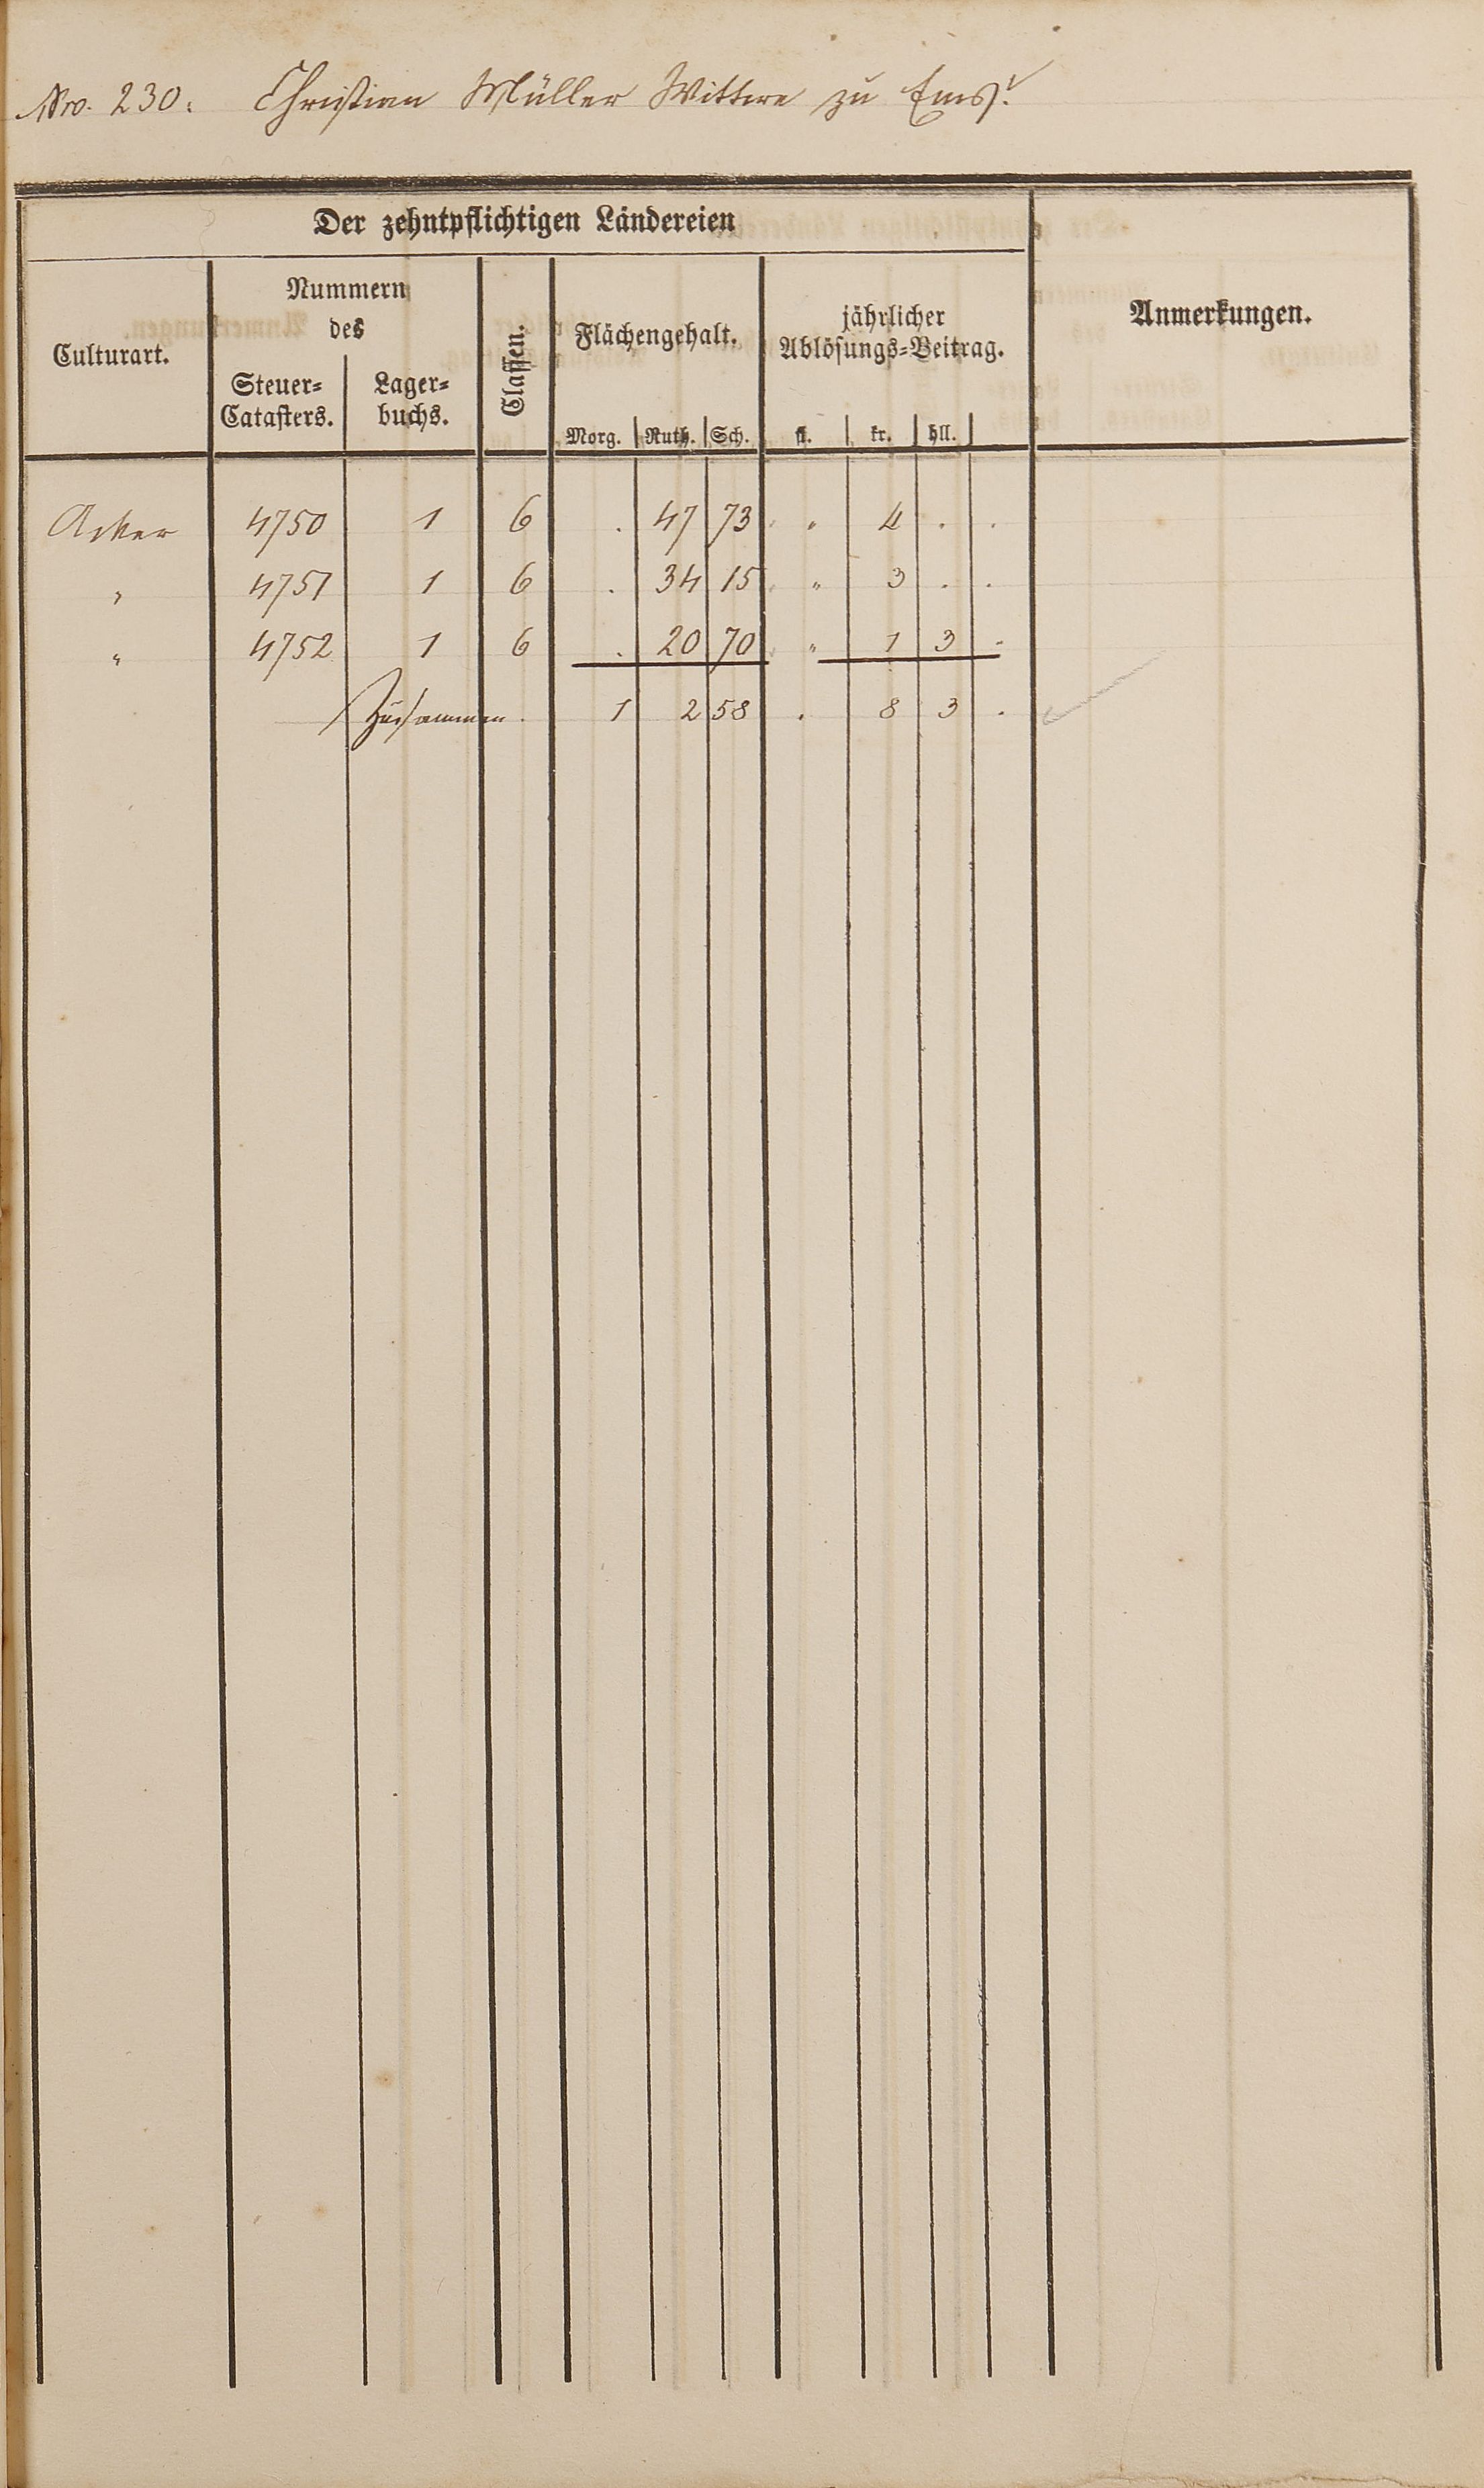 Nro. 230. Christian Müller Wittwe zu Ems.
Der zehntpflichtigen Ländereien
Culturart.
Nummern
des
Steuer=
Catasters.
Lager=
buchs.
Classen.
Flächengehalt.
Morg. Ruth. Sch.
jährlicher
Ablösungs=Beitrag.
fl. kr. hll.
Anmerkungen.
Acker 4750 1 6 . 47 73 " 4 . .
" 4751 1 6 . 34 15 " 3 . .
" 4752 1 6 . 20 70 " 1 3 .
Zusammen . 1 2 58 . 8 3 .